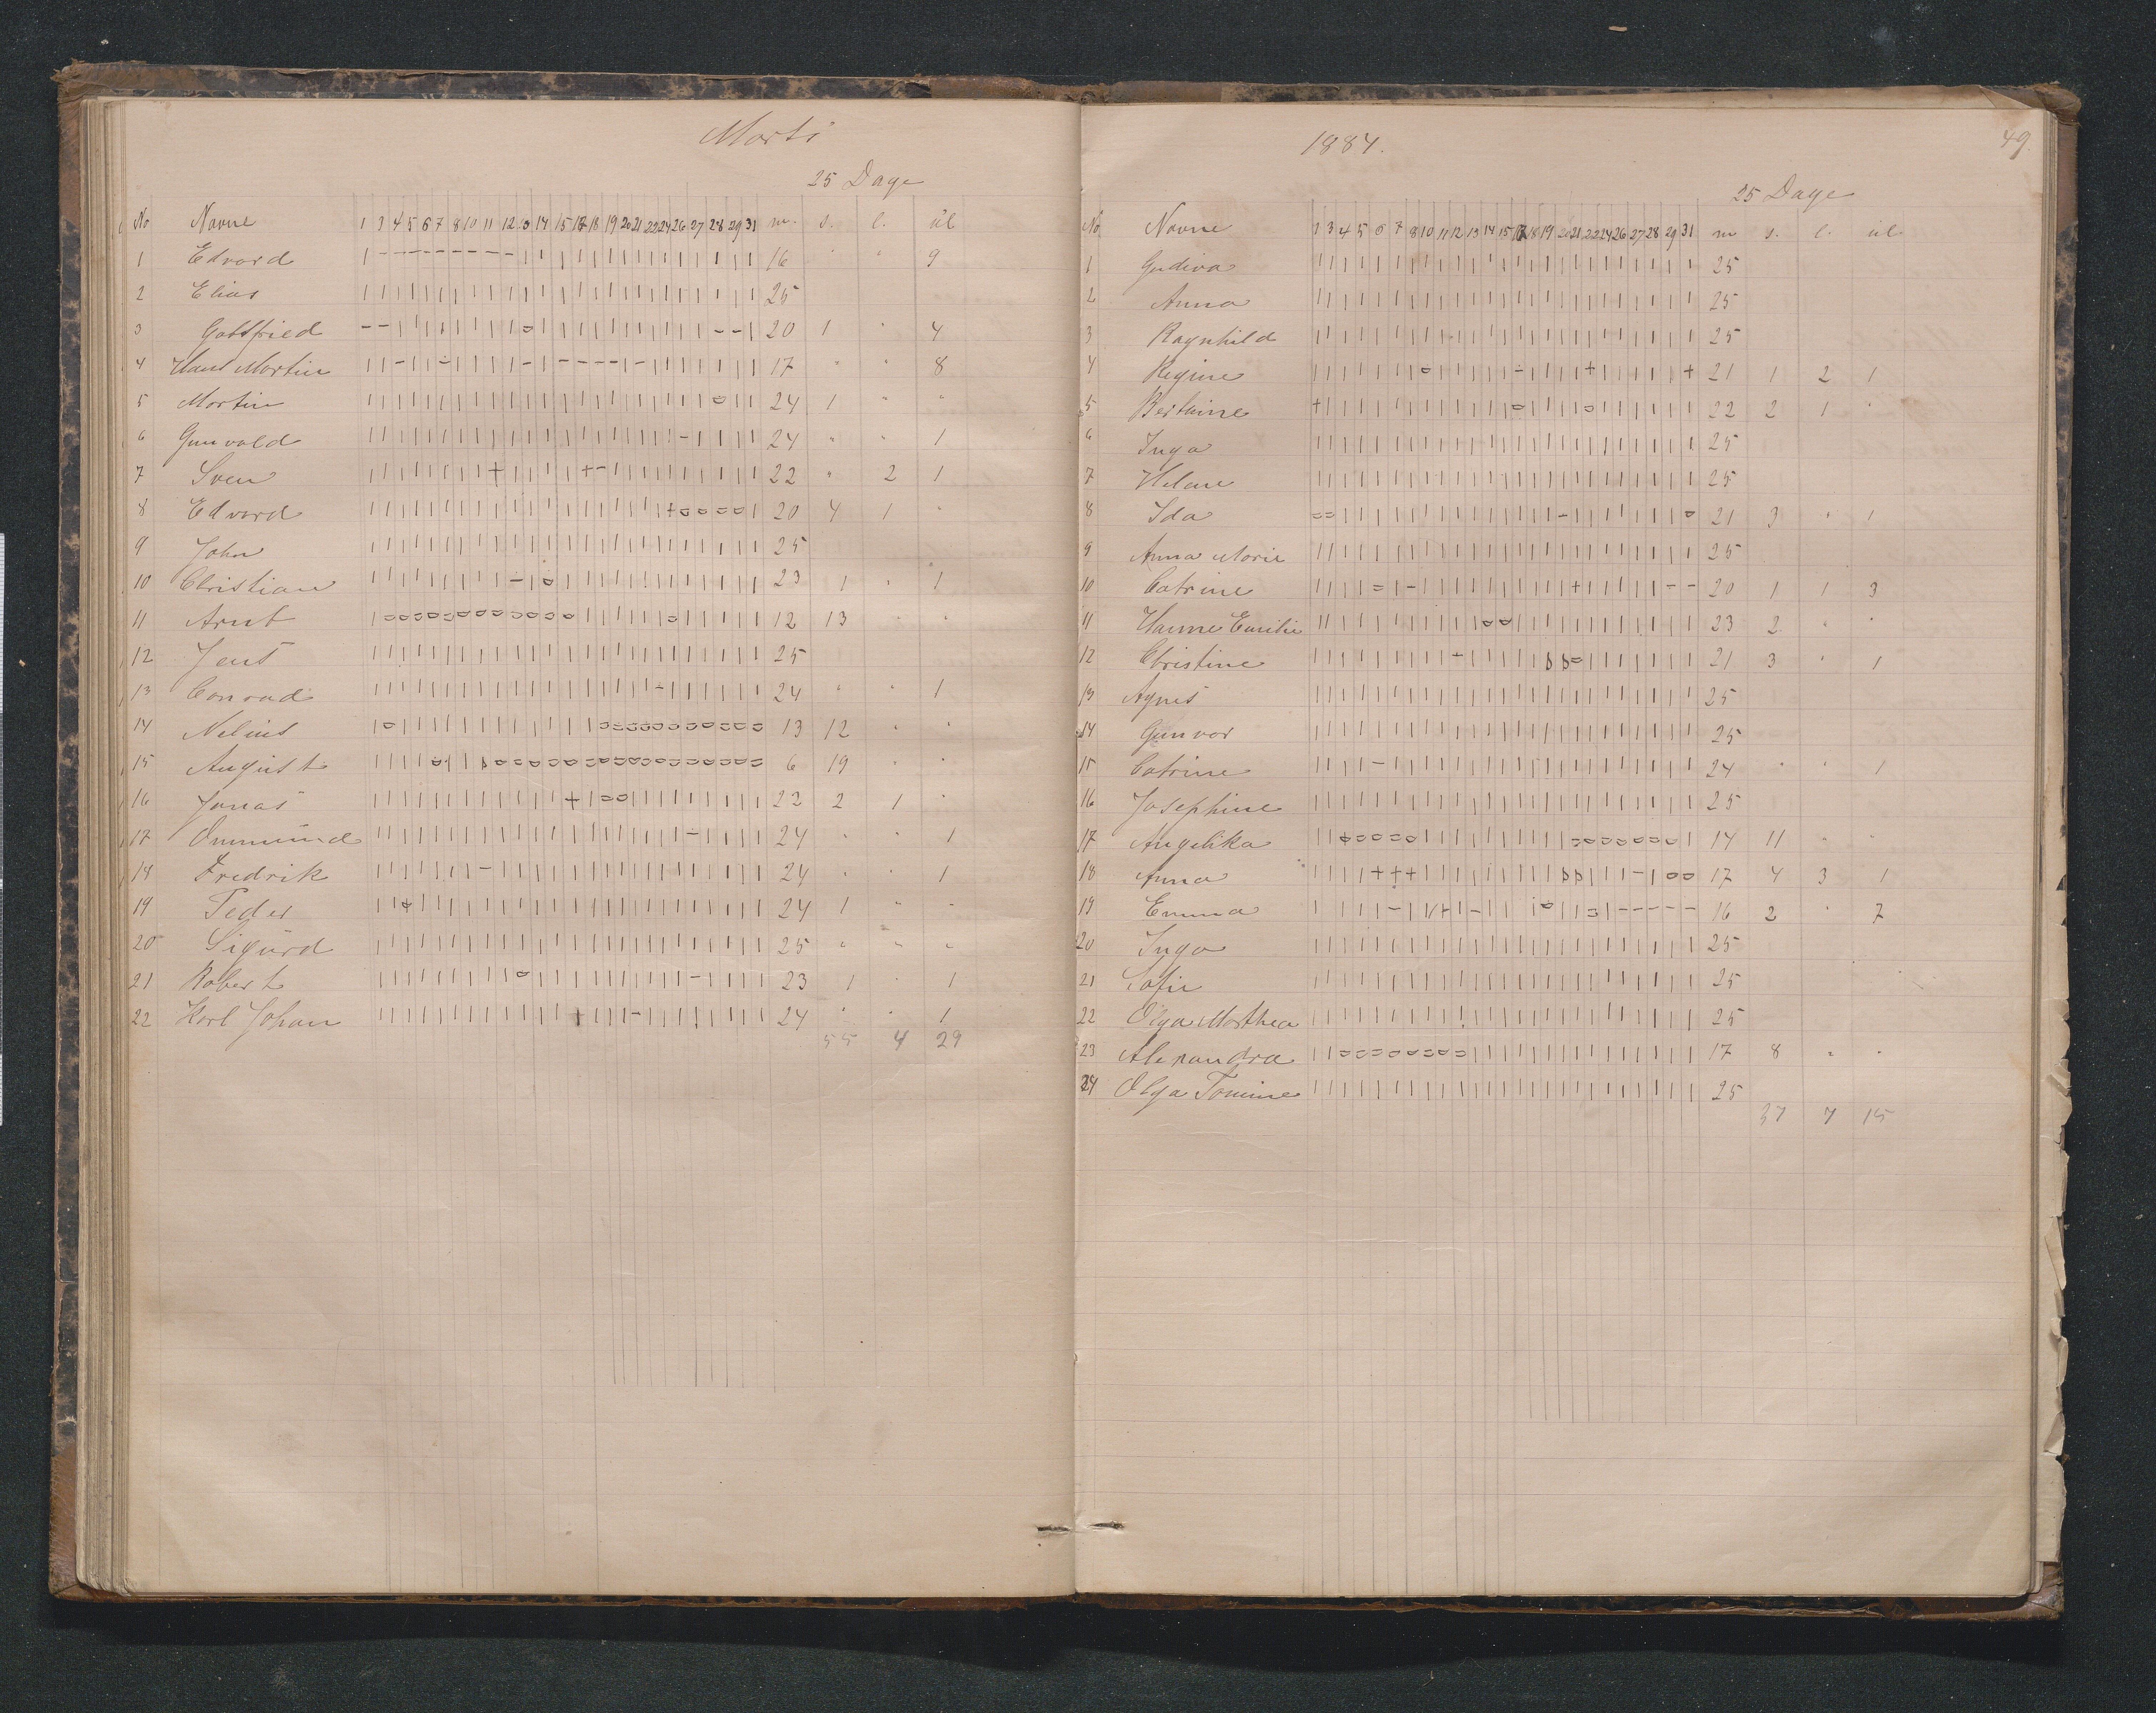 Marts
25 Dage
No Navne 1 3 4 5 6 7 8 10 11 12 13 14 15 17 18 19 20 21 22 24 26 27 28 29 31 m. s. l. ul
1 Edvard 16 " " 9
2 Elias 25
3 Gottfried 20 1 " 4
4 Hans Martin 17 " " 8
5 Martin 24 1 " "
6 Gunvald 24 " " 1
7 Sven 22 " 2 1
8 Edvard 20 4 1 "
9 John 25
10 Christian 23 1 " 1
11 Arnt 12 13 " "
12 Jens 25
13 Conrad 24 " " 1
14 Nelius 13 12 " "
15 August 6 19 " "
16 Jonas 22 2 1 "
17 Ommund 24 " " 1
18 Fredrik 24 " " 1
19 Peder 24 1 " "
20 Sigurd 25 " " "
21 Robert 23 1 1
22 Karl Johan 24 " " 1
55 4 29
1884.
49.
25 Dage
No Navne 1 3 4 5 6 7 8 10 11 12 13 14 15 17 18 19 20 21 22 24 26 27 28 29 31 m s. l. ul
1 Gudiva 25
2 Anna 25
3 Ragnhild 25
4 Regine 21 1 2 1
5 Bertine 22 2 1 "
6 Inga 25
7 Helene 25
8 Ida 21 3 " 1
9 Anna Marie 25
10 Catrine 20 1 1 3
11 Hanne Emilie 23 2 " "
12 Christine 21 3 " 1
13 Agnes 25
14 Gunvor 25
15 Catrine 24 " " 1
16 Josephine 25
17 Angelika 14 11 " "
18 Anna 17 4 3 1
19 Emma 16 2 " 7
20 Inga 25
21 Sofie 25
22 Olga Marthea 25
23 Alexandra 17 8 " "
24 Olga Tomine 25
37 7 15